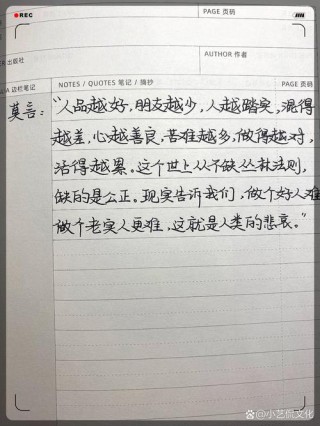 REC
PAGE 页码
出版社
AUTHOR 作者
边栏笔记
NOTES / QUOTES 笔记 / 摘抄
PAGE 页码
莫言：
“人品越好，朋友越少，人越踏实，混得
越差，心越善良，苦难越多，做得越对，
活得越累。这个世上从不缺丛林法则，
缺的是公正。现实告诉我们，做个好人难
做个老实人更难，这就是人类的悲哀。”
@小艺侃文化